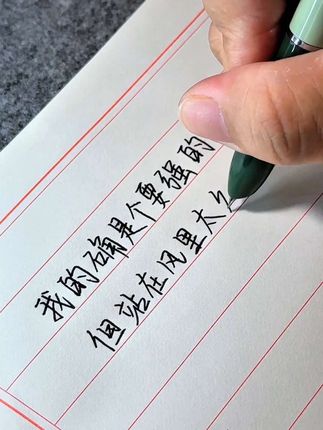 我的确是个要强的
但站在风里太